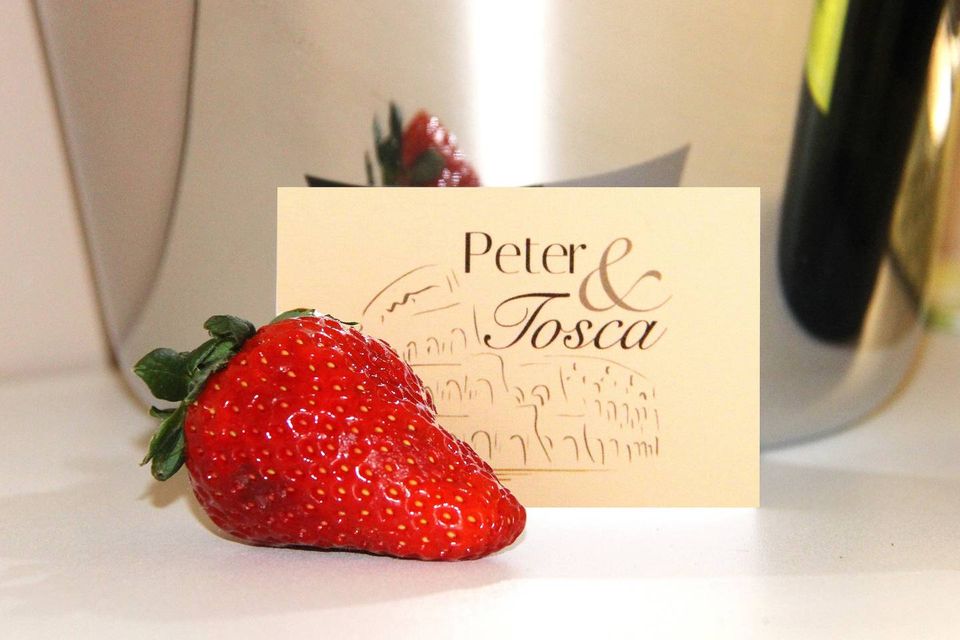 Peter
&
Tosca